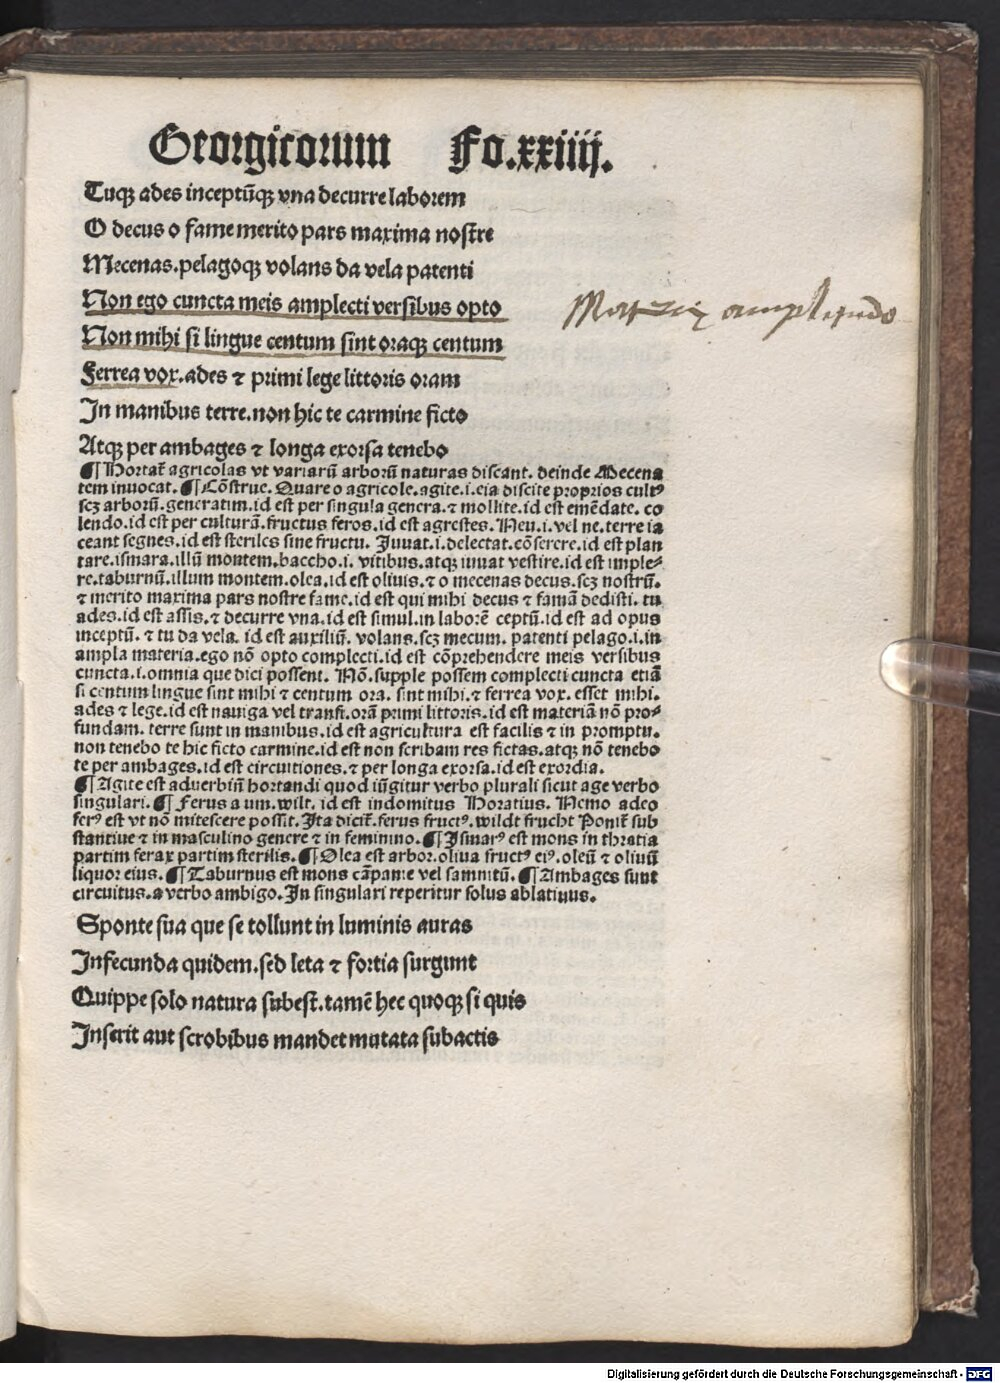 Georgicorum Fo.xxiiij.
Tuqꝫ ades inceptūqꝫ vna decurre laborem
O decus o fame merito pars maxima nostre
Mecenas.pelagoqꝫ volans da vela patenti
Non ego cuncta meis amplecti versibus opto
Non mihi si lingue centum sint oraqꝫ centum
Ferrea vox.ades ⁊ primi lege littoris oram
In manibus terre.non hic te carmine ficto
Atqꝫ per ambages ⁊ longa exorsa tenebo
¶ Hortat̄ agricolas vt variarū arborū naturas discant. deinde Mecena
tem inuocat. ¶ Cōstrue. Quare o agricole.agite.i.eia discite proprios cultꝰ
scꝫ arborū.generatim.id est per singula genera.⁊ mollite.id est emēdate. co
lendo.id est per culturā.fructus feros.id est agrestes. Neu.i.vel ne.terre ia
ceant segnes.id est steriles sine fructu. Juuat.i.delectat.cōserere.id est plan
tare.ismara.illū montem.baccho.i. vitibus.atqꝫ iuuat vestire.id est imple-
re.taburnū.illum montem.olea.id est oliuis.⁊ o mecenas decus.scꝫ nostrū.
⁊ merito maxima pars nostre fame.id est qui mihi decus ⁊ famā dedisti. tu
ades.id est assis.⁊ decurre vna.id est simul.in laborē ceptū.id est ad opus
inceptū. ⁊ tu da vela. id est auxiliū. volans.scꝫ mecum. patenti pelago.i.in
ampla materia.ego nō opto complecti.id est cōprehendere meis versibus
cuncta.i.omnia que dici possent. Nō.supple possem complecti cuncta etiā
si centum lingue sint mihi ⁊ centum ora. sint mihi.⁊ ferrea vox. esset mihi.
ades ⁊ lege.id est nauiga vel transi.orā primi littoris.id est materiā nō pro-
fundam. terre sunt in manibus.id est agricultura est facilis ⁊ in promptu.
non tenebo te hic ficto carmine.id est non scribam res fictas.atqꝫ nō tenebo
te per ambages.id est circuitiones.⁊ per longa exorsa.id est exordia.
¶ Agite est aduerbiū hortandi quod iūgitur verbo plurali sicut age verbo
singulari. ¶ Ferus a um.wilt. id est indomitus Horatius. Nemo adeo
ferꝰ est vt nō mitescere possit. Ita dicit̄.ferus fructꝰ.wildt frucht Ponit̄ sub
stantiue ⁊ in masculino genere ⁊ in feminino. ¶ Ismarꝰ est mons in thratia
partim ferax partim sterilis. ¶ Olea est arbor.oliua fructꝰ eiꝰ.oleū ⁊ oliuū
liquor eius. ¶ Taburnus est mons cāpanie vel samnitū. ¶ Ambages sunt
circuitus.a verbo ambigo. In singulari reperitur solus ablatiuus.
Sponte sua que se tollunt in luminis auras
Infecunda quidem.sed leta ⁊ fortia surgunt
Quippe solo natura subest.tamē hec quoqꝫ si quis
Inserit aut scrobibus mandet mutata subactis
Digitalisierung gefördert durch die Deutsche Forschungsgemeinschaft - DFG